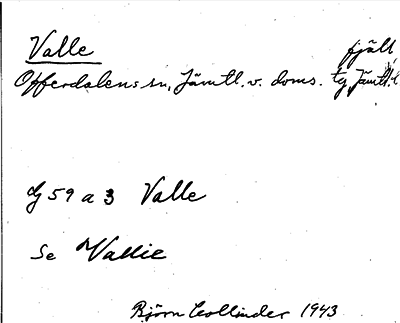 Valle fjäll
Offerdalens sn, Jämtl. v. doms. tg Jämtl. l
G 59 a 3 Valle
Se Vallie
Björn Collinder 1943